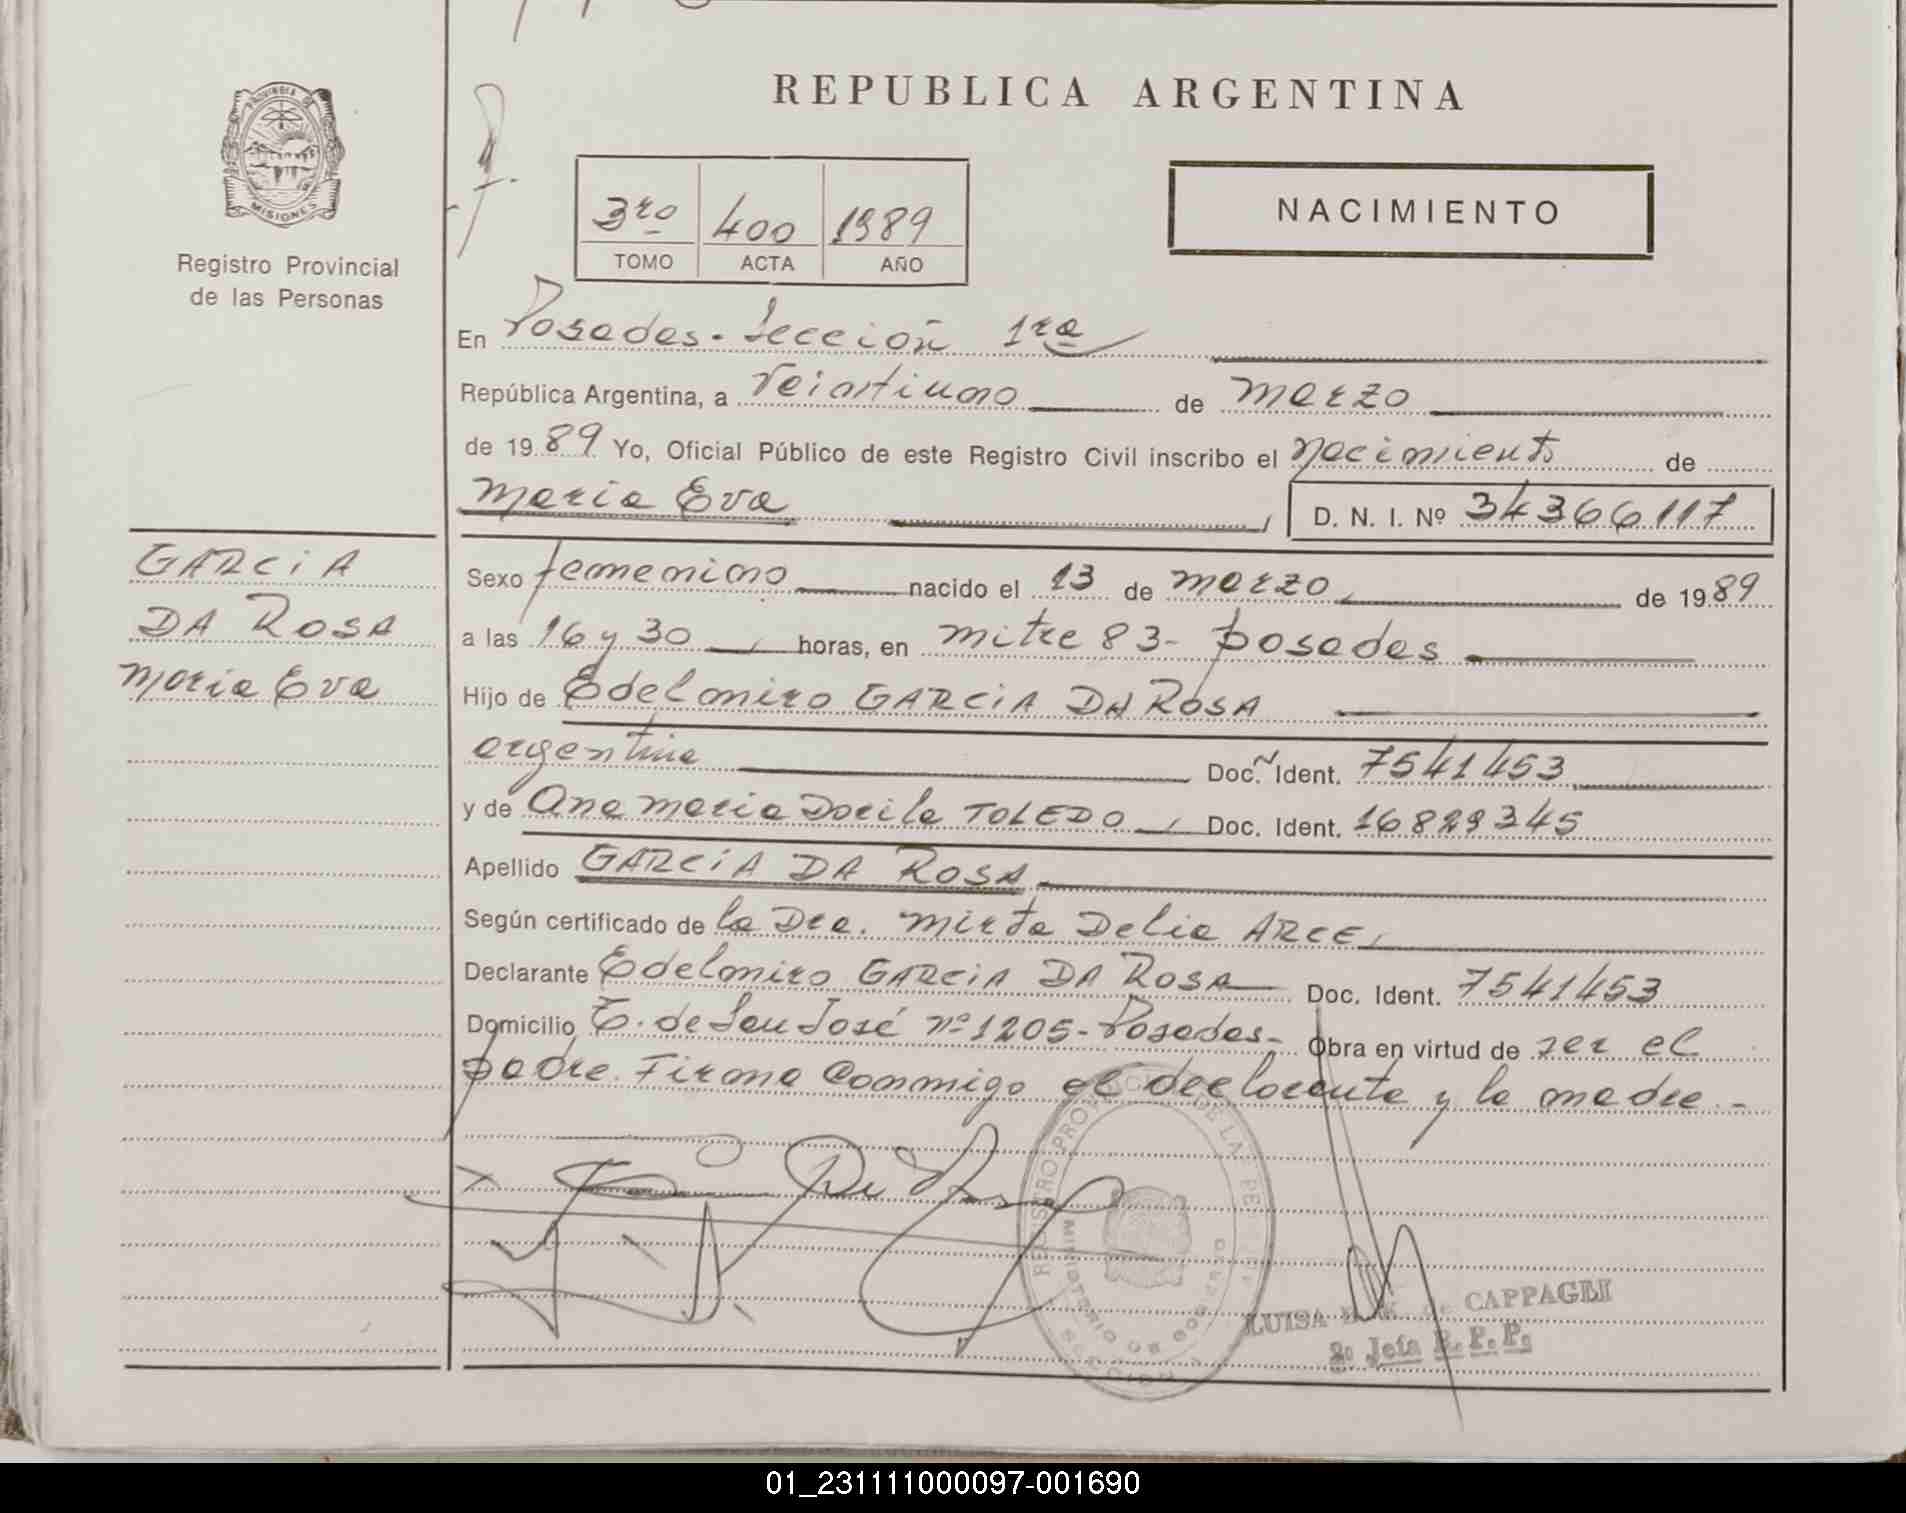 REPUBLICA ARGENTINA
PROVINCIA DE
MISIONES
Registro Provincial
de las Personas
3ro 400 1989
TOMO ACTA AÑO
NACIMIENTO
En Posadas - Sección 1ra
República Argentina, a Veintiuno de marzo
de 1989 Yo, Oficial Público de este Registro Civil inscribo el nacimiento de
Maria Eva D. N. I. Nº 34366117
GARCIA
DA ROSA
Maria Eva
Sexo femenino nacido el 13 de marzo de 1989
a las 16 y 30 horas, en mitre 83 - posadas
Hijo de Edelmiro GARCIA DA ROSA
argentina Doc. Ident. 7541453
y de Ana Maria Dorila TOLEDO Doc. Ident. 16829345
Apellido GARCIA DA ROSA
Según certificado de la Dra. Mirta Delia ARCE
Declarante Edelmiro GARCIA DA ROSA Doc. Ident. 7541453
Domicilio T. de San José nº 1205 - Posadas - Obra en virtud de ser el
padre. Firma Conmigo el declarante y la madre. -
REGISTRO PROVINCIAL DE LAS PER
MINISTERIO DE GOBIERNO
LUISA de CAPPAGLI
2º Jefa R. P. P.
01_231111000097-001690